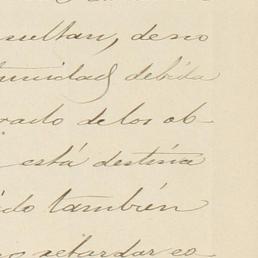 sultan, deseo
tunidad debida
rado de los ob-
está destina
ido también
no retardar co